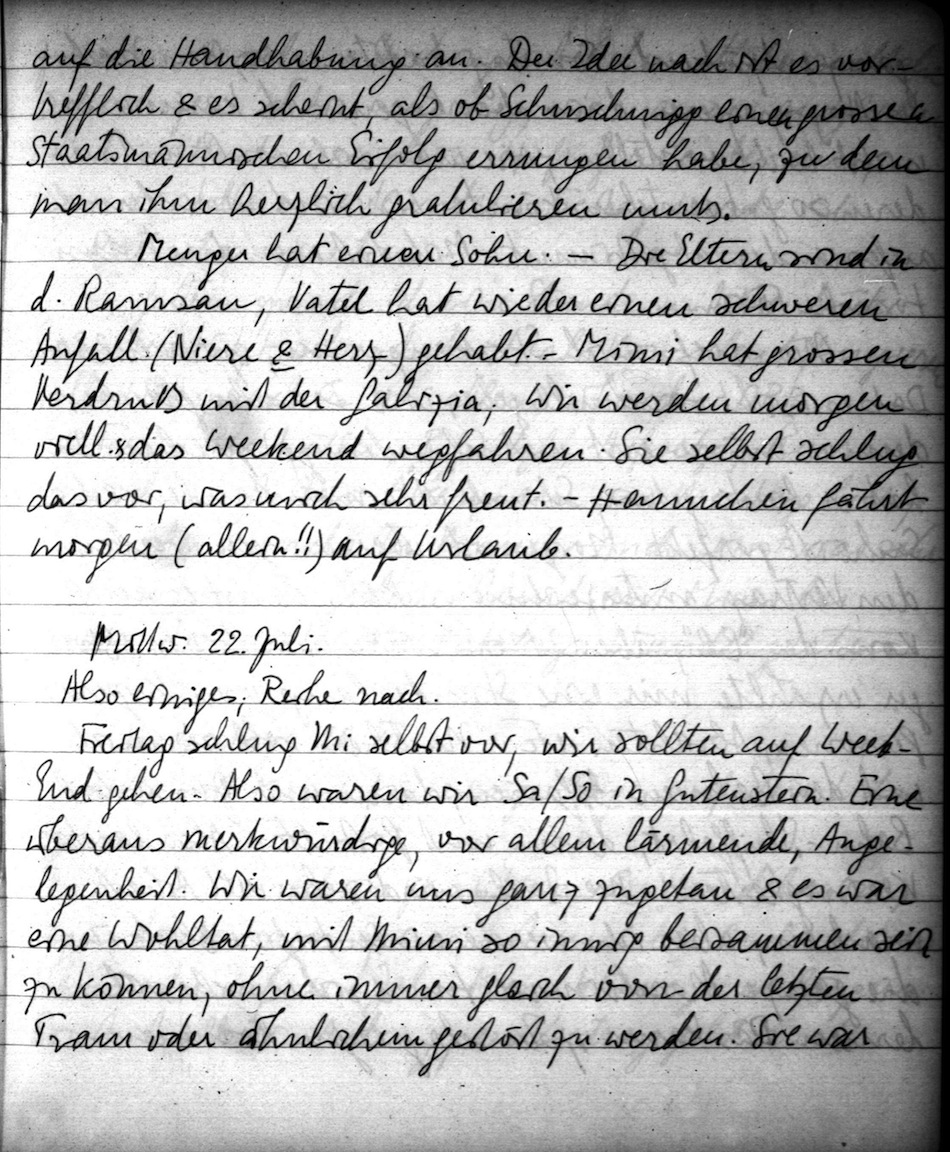 auf die Handhabung an. Der Idee nach ist es vor-
trefflich & es scheint, als ob Schuschnigg einen grossen
Staatsmännischen Erfolg errungen habe, zu dem
man ihm herzlich gratulieren muß.
Menger hat einen Sohn. – Die Eltern sind in
d. Ramsau, Vatel hat wieder einen schweren
Anfall (Niere & Herz) gehabt. – Mimi hat grossen
Verdruß mit der Galizia, wir werden morgen
viell. das Weekend wegfahren. Sie selbst schlug
das vor, was mich sehr freut. – Hannchen fährt
morgen (allein!!) auf Urlaub.
Mittw. 22. Juli.
Also einiges, Reihe nach.
Freitag schlug Mi selbst vor, wir sollten auf Week-
End gehen. Also waren wir Sa/So in Gutenstein. Eine
überaus merkwürdige, vor allem lärmende, Ange-
legenheit. Wir waren uns ganz zugetan & es war
eine Wohltat, mit Mimi so innig beisammen sein
zu können, ohne immer gleich von der letzten
Tram oder ähnlichem gestört zu werden. Sie war